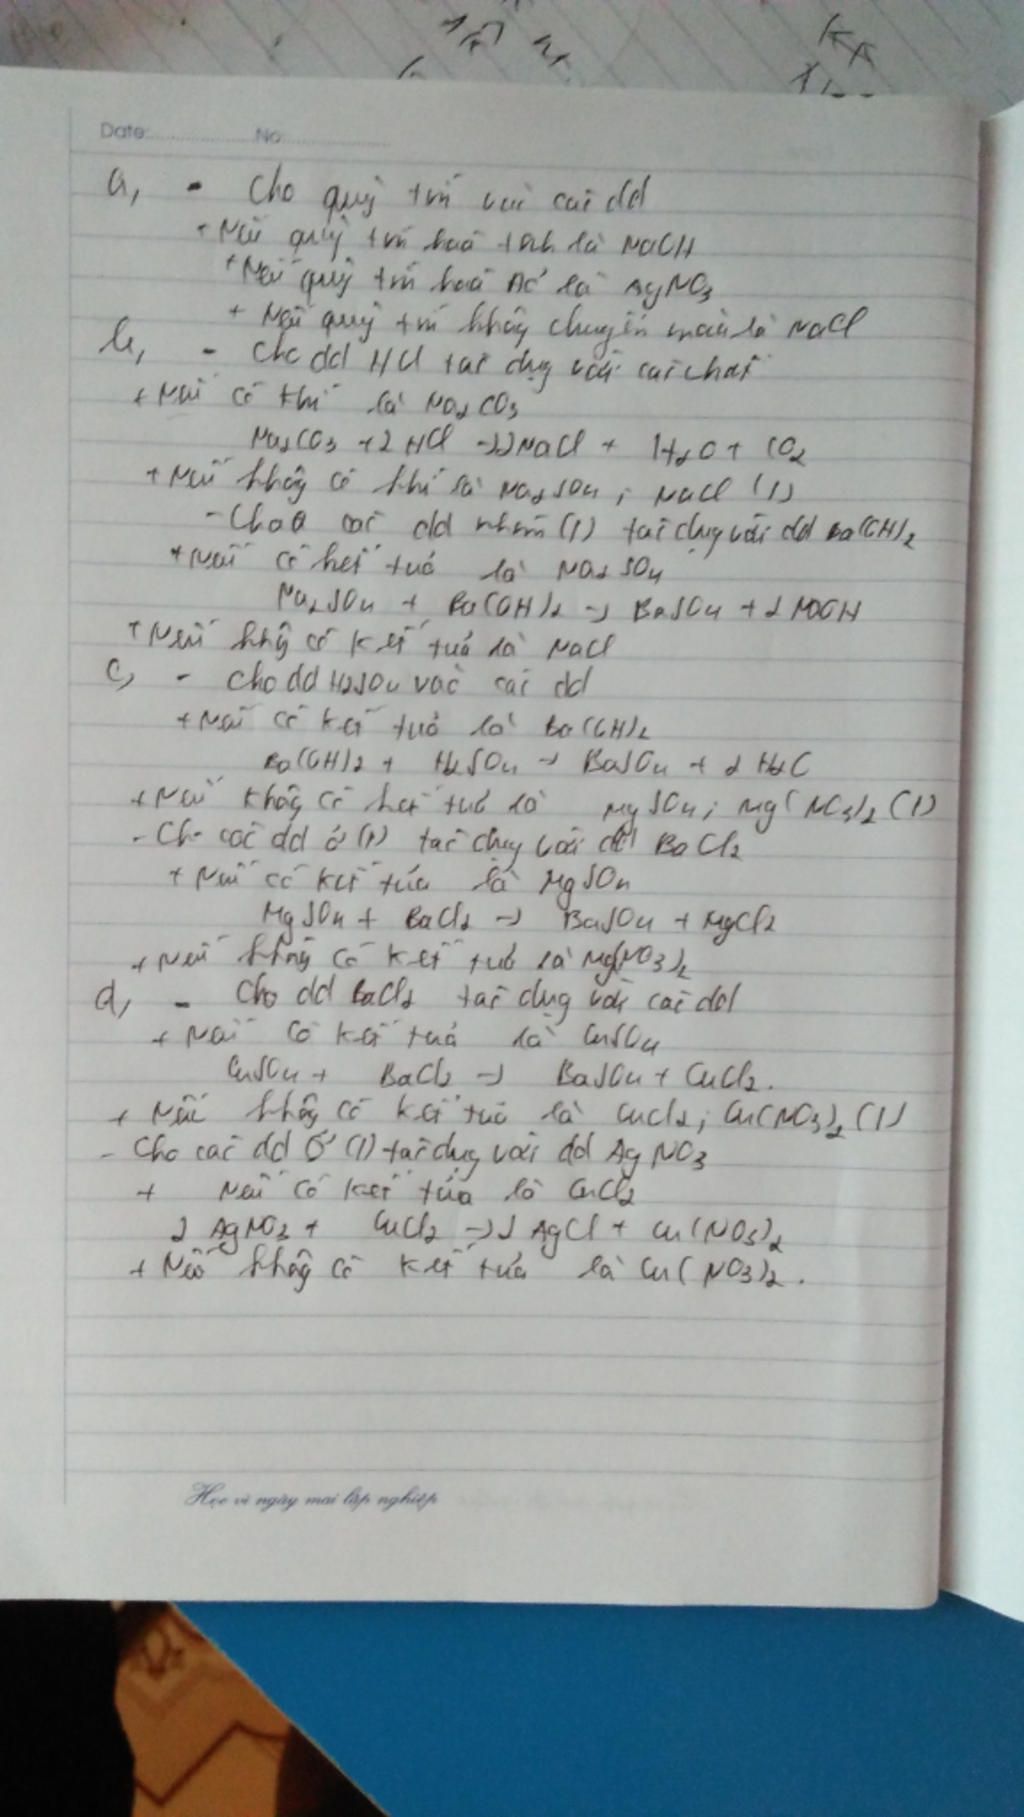 Date: No:
a, - Cho quỳ tím vào các dd
+ Nếu quỳ tím hoá xanh là NaOH
+ Nếu quỳ tím hoá đỏ là AgNO3
+ Nếu quỳ tím không chuyển màu là NaCl
b, - Cho dd HCl tác dụng với các chất
+ Nếu có khí là Na2CO3
Na2CO3 + 2 HCl → 2NaCl + H2O + CO2
+ Nếu không có khí là Na2SO4 ; NaCl (1)
- Cho các dd nhóm (1) tác dụng với dd Ba(OH)2
+ Nếu có kết tủa là Na2SO4
Na2SO4 + Ba(OH)2 → BaSO4 + 2 NaOH
+ Nếu không có kết tủa là NaCl
c, - Cho dd H2SO4 vào các dd
+ Nếu có kết tủa là Ba(OH)2
Ba(OH)2 + H2SO4 → BaSO4 + 2 H2O
+ Nếu không có kết tủa là MgSO4 ; Mg(NO3)2 (1)
- Cho các dd ở (1) tác dụng với dd BaCl2
+ Nếu có kết tủa là MgSO4
MgSO4 + BaCl2 → BaSO4 + MgCl2
+ Nếu không có kết tủa là Mg(NO3)2
d, - Cho dd BaCl2 tác dụng với các dd
+ Nếu có kết tủa là CuSO4
CuSO4 + BaCl2 → BaSO4 + CuCl2.
+ Nếu không có kết tủa là CuCl2 ; Cu(NO3)2 (1)
- Cho các dd ở (1) tác dụng với dd AgNO3
+ Nếu có kết tủa là CuCl2
2 AgNO3 + CuCl2 → 2 AgCl + Cu(NO3)2
+ Nếu không có kết tủa là Cu(NO3)2.
Học vì ngày mai lập nghiệp